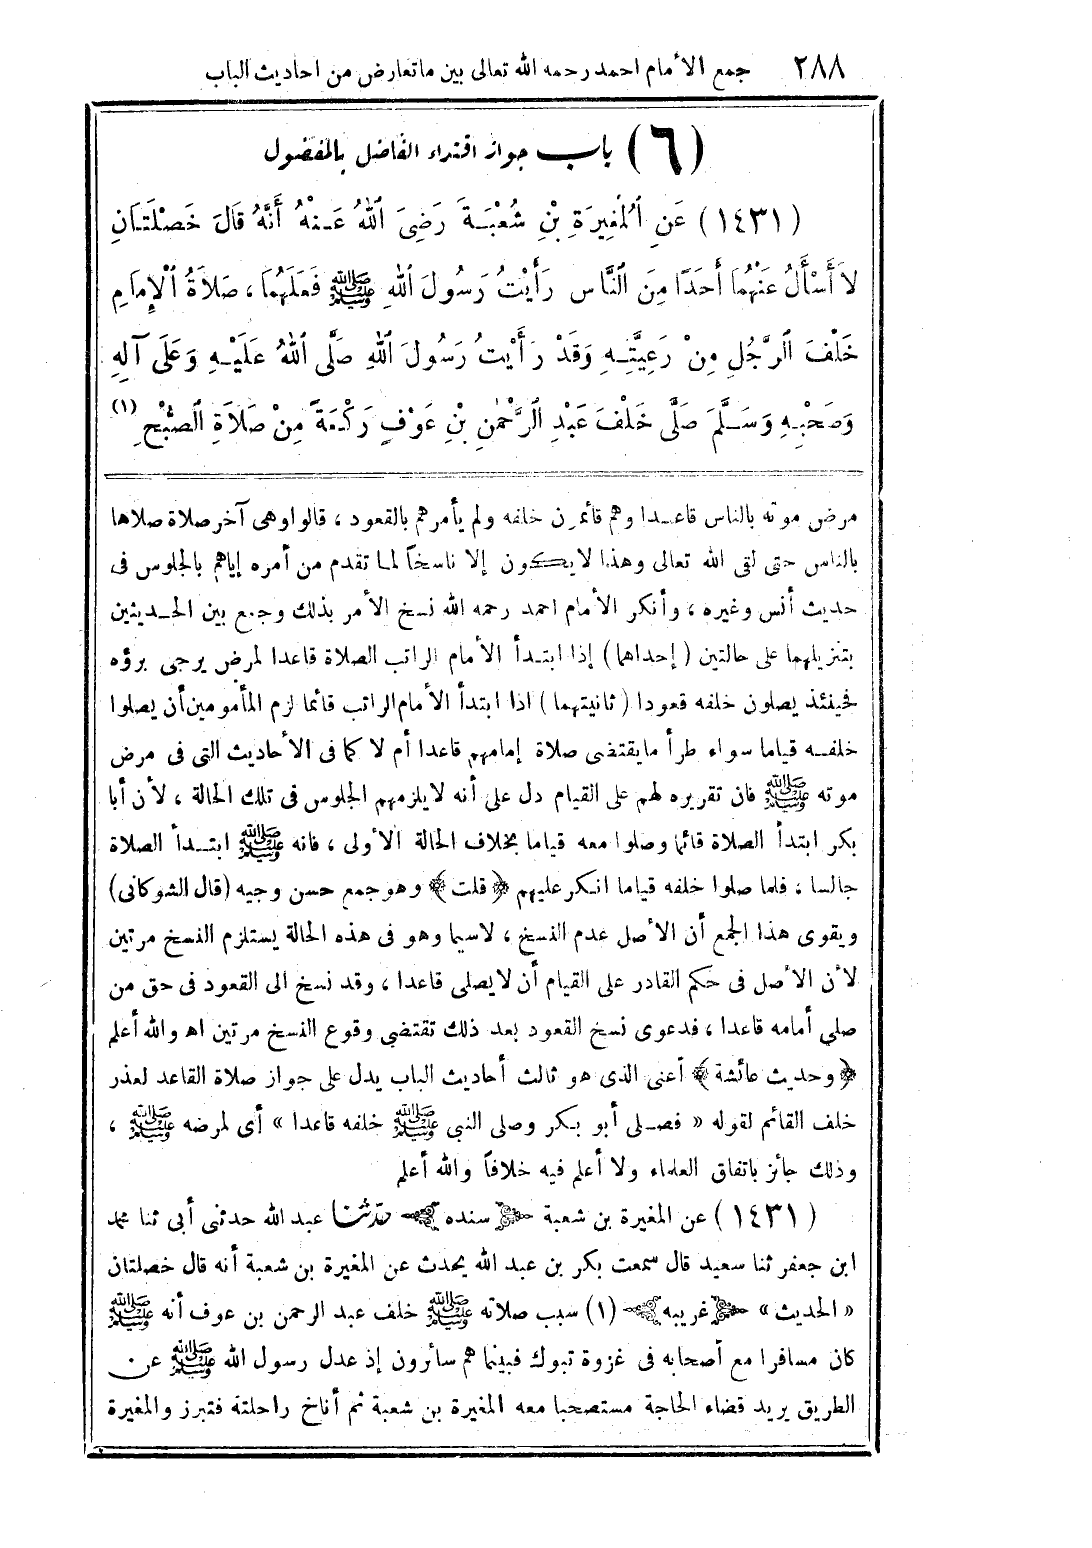 ٢٨٨ جمع الأمام احمد رحمه الله تعالى بين ماتعارض من احاديث الباب
(٦) باب جواز اقتداء الفاضل بالمفضول
(١٤٣١) عَنِ ٱلْمُغِيرَةِ بْنِ شُعْبَةَ رَضِيَ ٱللهُ عَنْهُ أَنَّهُ قَالَ خَصْلَتَانِ
لاَ أَسْأَلُ عَنْهُمَا أَحَدًا مِنَ ٱلنَّاسِ رَأَيْتُ رَسُولَ ٱللهِ ﷺ فَعَلَهُمَا، صَلاَةُ ٱلْإِمَامِ
خَلْفَ ٱلرَّجُلِ مِنْ رَعِيَّتِهِ وَقَدْ رَأَيْتُ رَسُولَ ٱللهِ صَلَّى ٱللهُ عَلَيْهِ وَعَلَى آلِهِ
وَصَحْبِهِ وَسَلَّمَ صَلَّى خَلْفَ عَبْدِ ٱلرَّحْمٰنِ بْنِ عَوْفٍ رَكْعَةً مِنْ صَلاَةِ ٱلصُّبْحِ (١)
مرض موته بالناس قاعدا وهم قائمون خلفه ولم يأمرهم بالقعود ، قالوا وهى آخر صلاة صلاها
بالناس حتى لقى الله تعالى وهذا لايكون إلا ناسخاً لما تقدم من أمره إياهم بالجلوس فى
حديث أنس وغيره ، وأنكر الأمام احمد رحمه الله نسخ الأمر بذلك وجمع بين الحديثين
بتنزيلهما على حالتين (إحداهما) إذا ابتدأ الأمام الراتب الصلاة قاعدا لمرض يرجى برؤه
فحينئذ يصلون خلفه قعودا (ثانيتهما) اذا ابتدأ الأمام الراتب قائما لزم المأمومين أن يصلوا
خلفه قياما سواء طرأ مايقتضى صلاة إمامهم قاعدا أم لا كما فى الأحاديث التى فى مرض
موته ﷺ فان تقريره لهم على القيام دل على أنه لايلزمهم الجلوس فى تلك الحالة ، لأن أبا
بكر ابتدأ الصلاة قائما وصلوا معه قياما بخلاف الحالة الأولى ، فانه ﷺ ابتدأ الصلاة
جالسا ، فلما صلوا خلفه قياما انكر عليهم ﴿قلت﴾ وهو جمع حسن وجيه (قال الشوكانى)
ويقوى هذا الجمع أن الأصل عدم النسخ ، لاسيما وهو فى هذه الحالة يستلزم النسخ مرتين
لأن الأصل فى حكم القادر على القيام أن لايصلى قاعدا ، وقد نسخ الى القعود فى حق من
صلى أمامه قاعدا ، فدعوى نسخ القعود بعد ذلك تقتضى وقوع النسخ مرتين اه والله أعلم
﴿وحديث عائشة﴾ أعنى الذى هو ثالث أحاديث الباب يدل على جواز صلاة القاعد لعذر
خلف القائم لقوله « فصلى أبو بكر وصلى النبى ﷺ خلفه قاعدا » أى لمرضه ﷺ ،
وذلك جائز باتفاق العلماء ولا أعلم فيه خلافاً والله أعلم
(١٤٣١) عن المغيرة بن شعبة سنده حدثنا عبد الله حدثنى أبى ثنا محمد
ابن جعفر ثنا سعيد قال سمعت بكر بن عبد الله يحدث عن المغيرة بن شعبة أنه قال خصلتان
« الحديث » غريبه (١) سبب صلاته ﷺ خلف عبد الرحمن بن عوف أنه ﷺ
كان مسافرا مع أصحابه فى غزوة تبوك فبينما هم سائرون إذ عدل رسول الله ﷺ عن
الطريق يريد قضاء الحاجة مستصحبا معه المغيرة بن شعبة ثم أناخ راحلته فتبرز والمغيرة